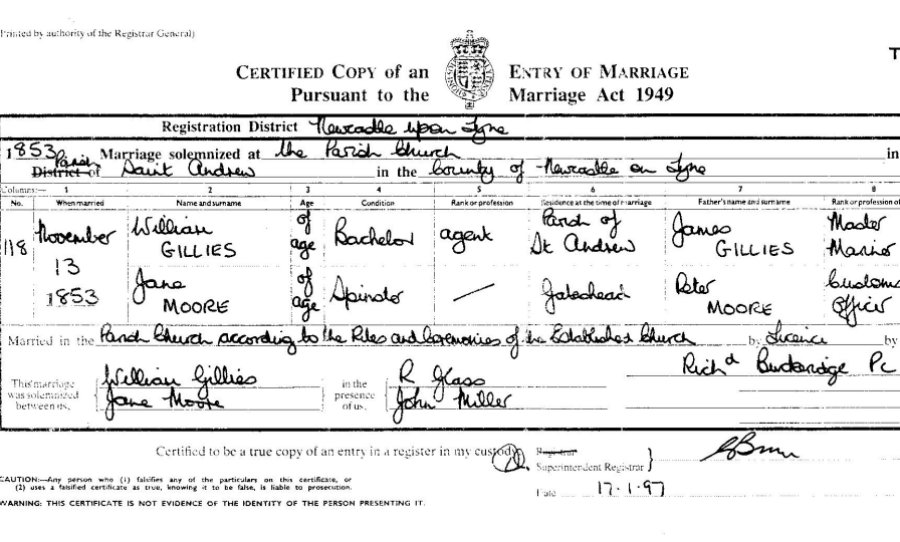 Printed by authority of the Registrar General)
T
CERTIFIED COPY OF AN ENTRY OF MARRIAGE
Pursuant to the Marriage Act 1949
Registration District Newcastle upon Tyne
1853 Marriage solemnized at the Parish Church in
Parish
District of Saint Andrew in the County of Newcastle on Tyne
Columns:— 1 2 3 4 5 6 7 8
No. When married Name and surname Age Condition Rank or profession Residence at the time of marriage Father's name and surname Rank or profession of
118 November 13 1853 William GILLIES of age Bachelor agent Parish of St Andrew James GILLIES Master Mariner
Jane MOORE of age Spinster — Gateshead Peter MOORE Customs Officer
Married in the Parish Church according to the Rites and Ceremonies of the Established Church by Licence by
This marriage was solemnized between us, William Gillies Jane Moore in the presence of us, R Glass John Miller Richd Pc
Certified to be a true copy of an entry in a register in my custody
Registrar
Superintendent Registrar
Date 17.1.97
CAUTION:—Any person who (1) falsifies any of the particulars on this certificate, or
(2) uses a falsified certificate as true, knowing it to be false, is liable to prosecution.
WARNING: THIS CERTIFICATE IS NOT EVIDENCE OF THE IDENTITY OF THE PERSON PRESENTING IT.